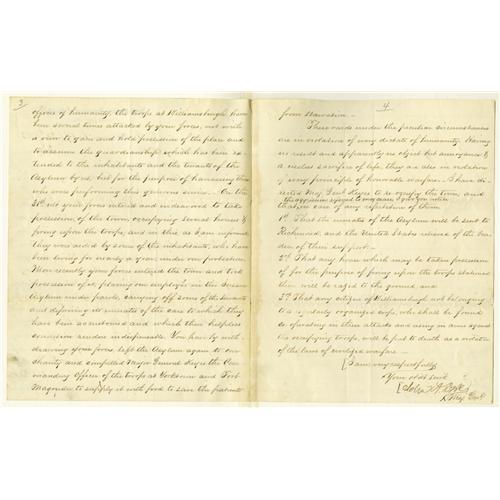 3
offices of humanity, the troops at Williamsburgh have
been several times attacked by your forces, not with
a view to gain and hold possession of the place and
to assume the guardianship which has been ex-
tended to the inhabitants and the inmates of the
Asylum by us, but for the purpose of harassing those
who were performing this generous service. On the
your forces entered and endeavored to take
possession of the town, occupying several houses &
firing upon the troops, and in this as I am informed
they were aided by some of the inhabitants, who have
been living for nearly a year under our protection.
More recently your forces entered the town and took
possession of it, placing our employés in the Insane
Asylum under guard, carrying off some of the inmates
and depriving its inmates of the care to which they
have been accustomed and which their helpless
condition renders indispensable. You have by with-
drawing your forces left the Asylum again to our
charity and compelled Major General Keyes the Com-
manding Officer of the troops at Yorktown and Fort
Magruder to supply it with food to save the patients
4
from starvation.
These raids under the peculiar circumstances
are in violation of every dictate of humanity. Having
no result and apparently no object but annoyance &
a useless sacrifice of life, they are also in violation
of every principle of honorable warfare. I have di-
rected Maj. Genl Keyes to re occupy the town, and
the aggression refered to may cease I give you notice
that in case of any repetition of them
1st That the inmates of the Asylum will be sent to
Richmond, and the United States relieved of the bur-
den of their support.
2d That any house which may be taken possession
of for the purpose of firing upon the troops stationed
there will be razed to the ground, and
3d That any citizen of Williamsburgh not belonging
to a regularly organized corps, who shall be found
co-operating in these attacks and using an arms against
the occupying troops, will be put to death as a violator
of the laws of civilized warfare.
I am very respectfully
Your obt Servt
John A. Dix
Maj Genl